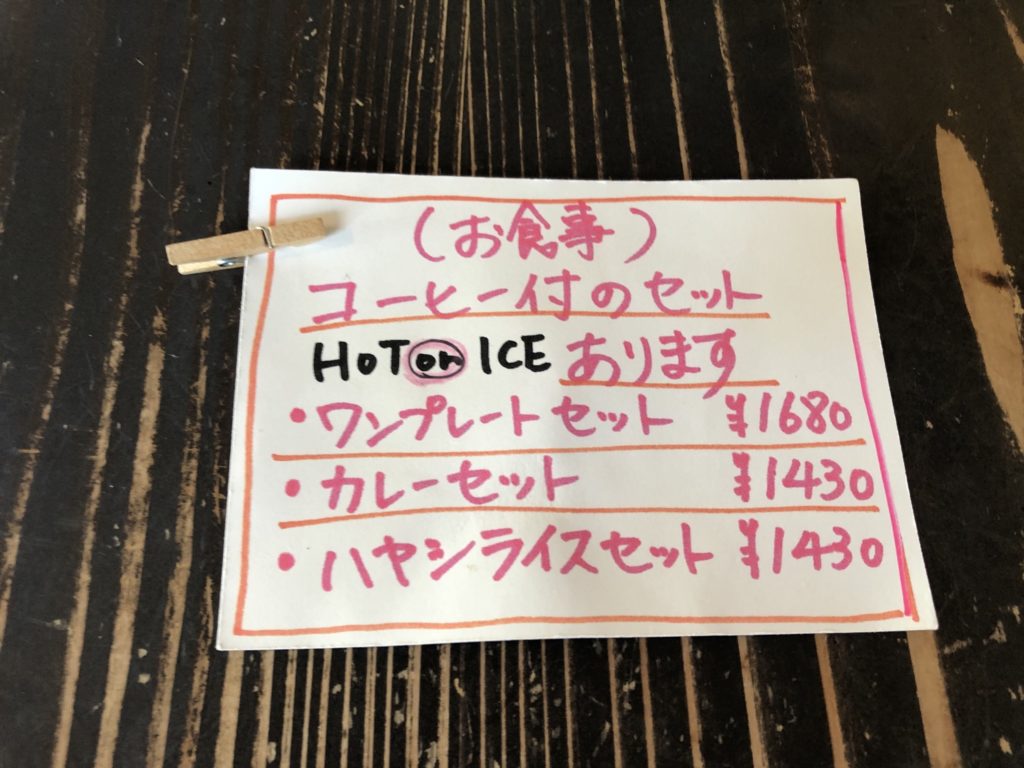 (お食事)
コーヒー付のセット
HOT or ICE あります
・ワンプレートセット ¥1680
・カレーセット ¥1430
・ハヤシライスセット ¥1430